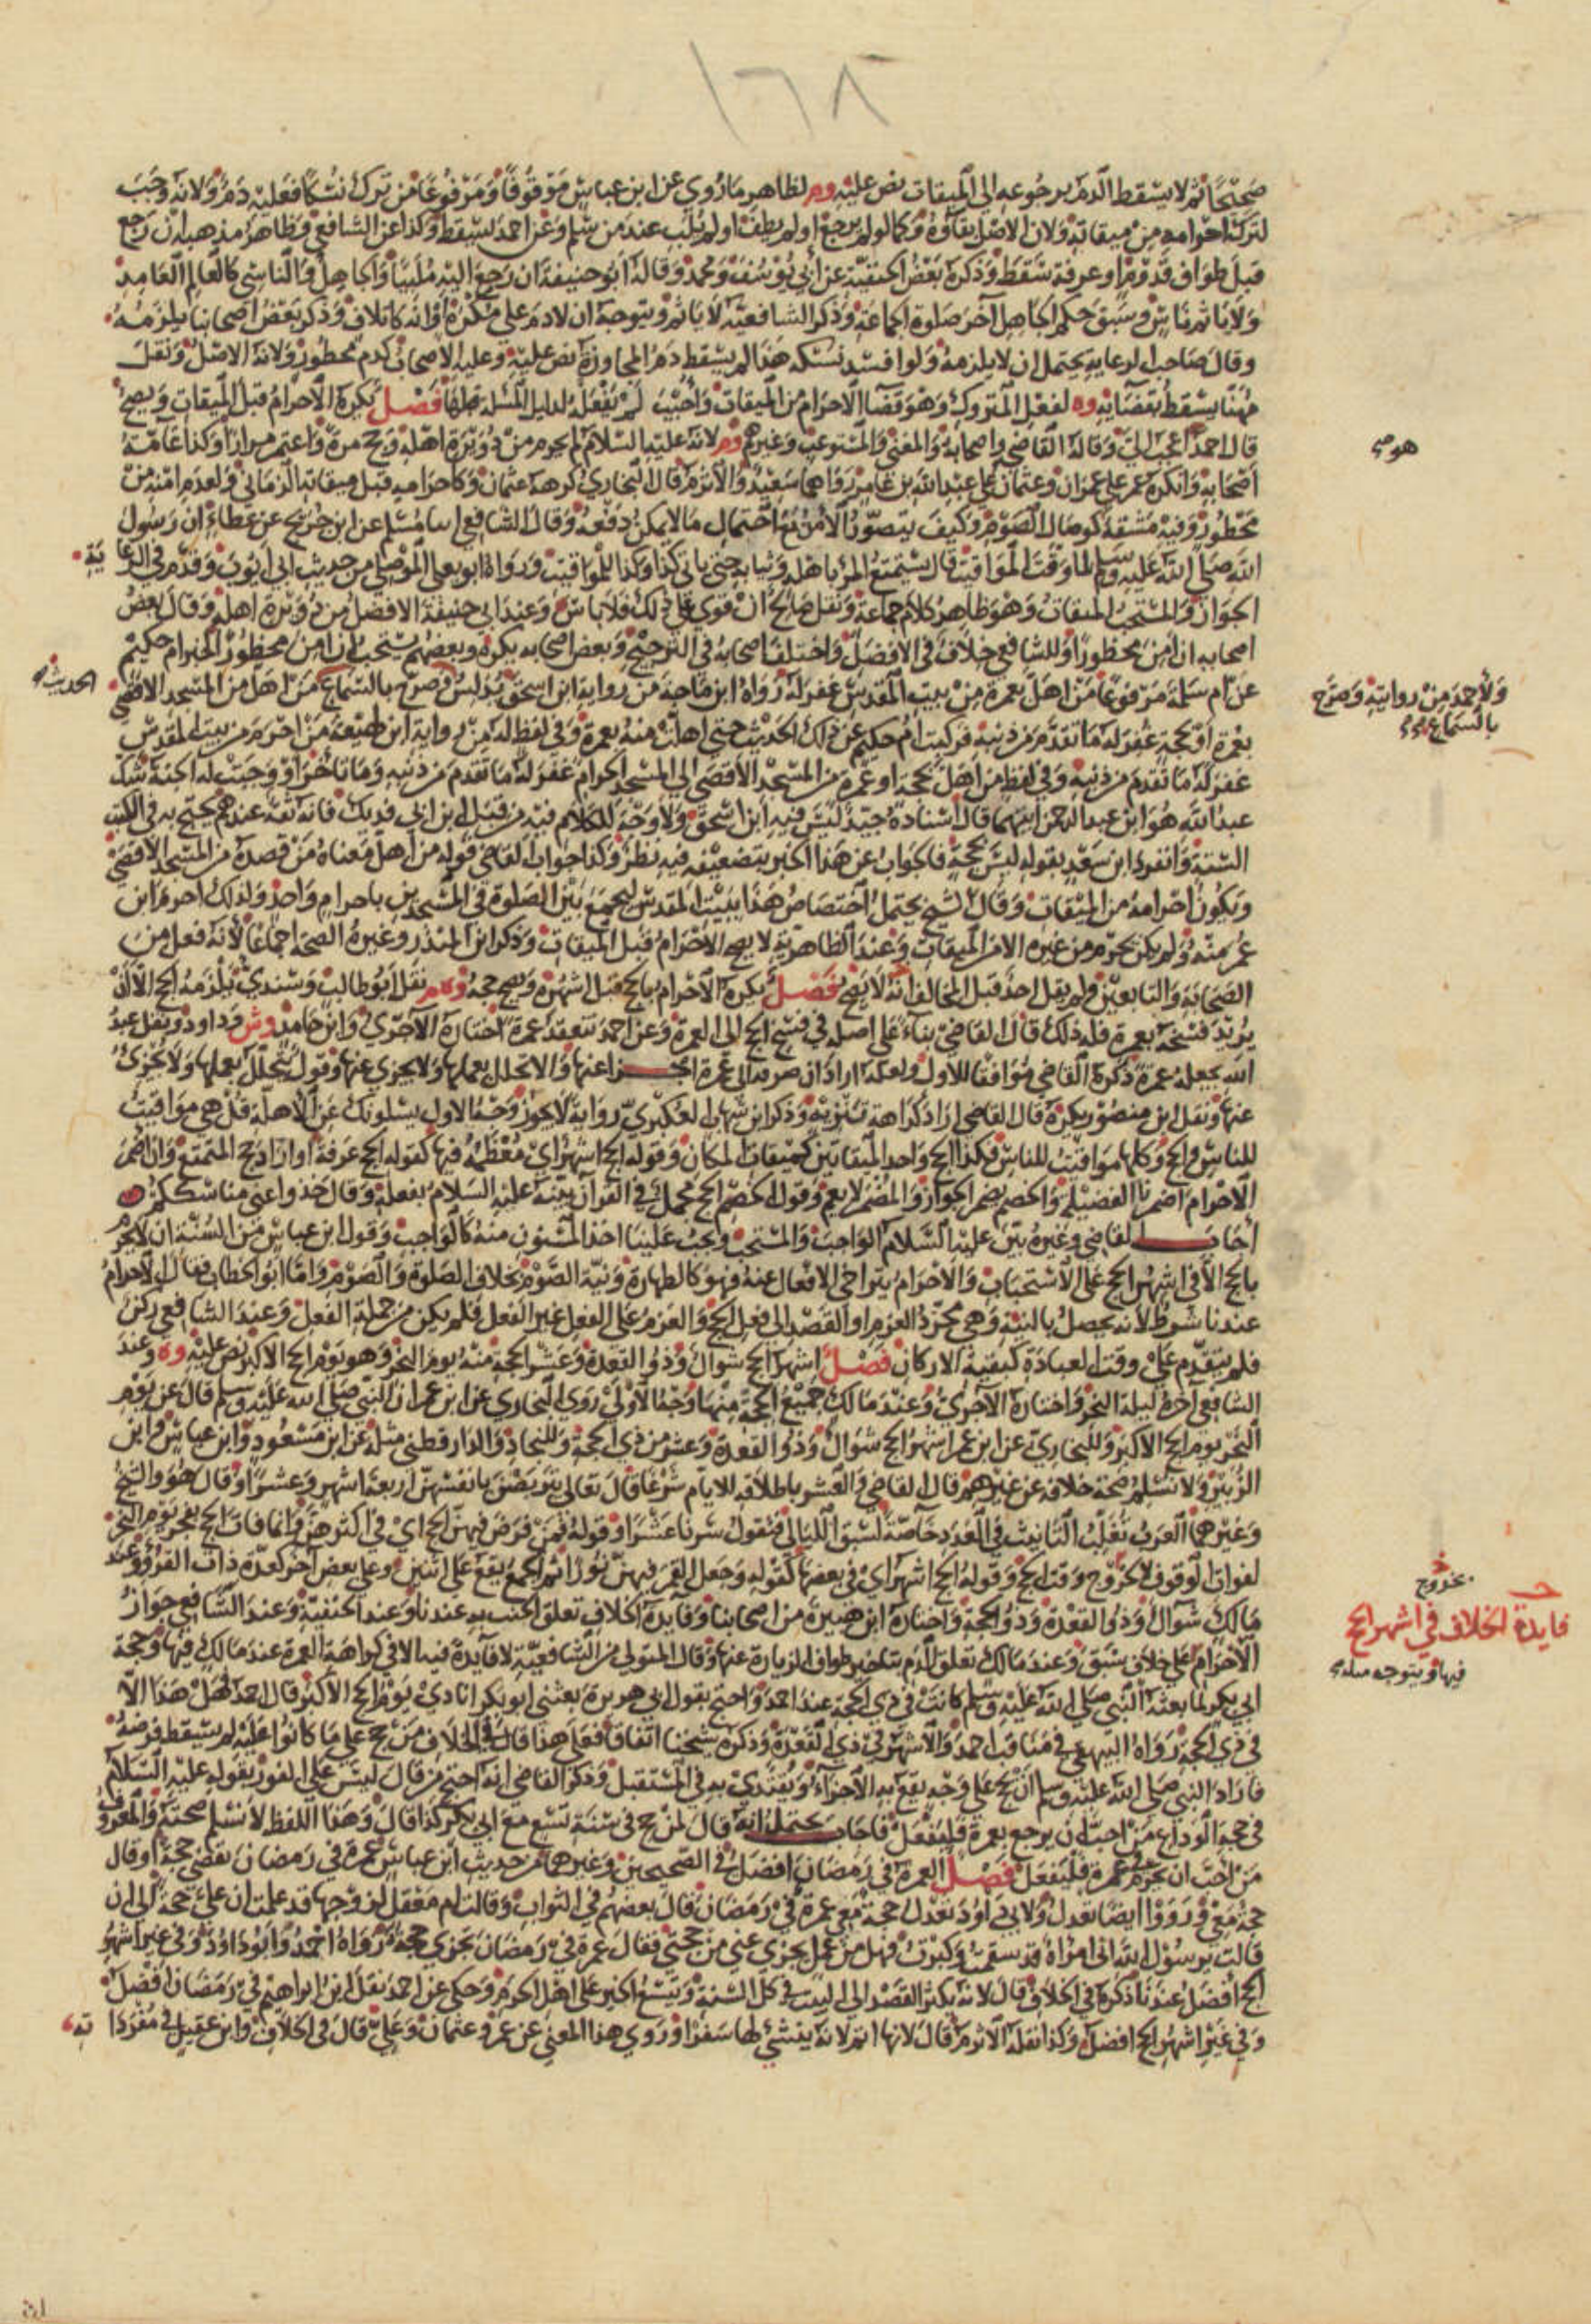 ١٦٨
صحيحا ثم لا يسقط الدم برجوعه إلى الميقات نص عليه وم لظاهر ما روي عن ابن عباس موقوفا ومرفوعا من ترك نسكا فعليه دم ولانه وجب
لتركه احرامه من ميقاته ولان الاصل بقاؤه وكما لو لم يرجع او لم يطف او لم يلب عند من سلم وعن احمد يسقط وكذا عن الشافعي وظاهر مذهبه ان رجع
قبل طواف قدوم او عرفة سقط وذكره بعض الحنفية عن ابي يوسف ومحمد وقال ابو حنيفة ان رجع اليه ملبيا والجاهل والناسي كالعالم العامد
ولا ياثم ناس وسبق حكم الجاهل آخر صلوة الجماعة وذكر الشافعية لا ياثم ويتوجه ان لا دم على مكره او انه كاتلاف وذكر بعض اصحابنا يلزمه
وقال صاحب الرعاية يحتمل ان لا يلزمه ولو افسد نسكه هذا لم يسقط دم المجاوزة نص عليه وعليه الاصحاب كدم محظور ولانه الاصل ونقل
مهنا يسقط بقضائه وه لفعل المتروك وهو قضا الاحرام من الميقات واجيب لم يفعله لدليل المسئلة قبلها فصل يكره الاحرام قبل الميقات ويصح
قال احمد اعجب الي وقاله القاضي واصحابه والمغني والمستوعب وغيرهم وم لانه عليه السلام لم يحرم من دويرة اهله وحج مرة واعتمر مرارا وكذا عامة
هو ص
اصحابه وانكره عمر على عمران وعثمان على عبد الله بن عامر رواهما سعيد والاثرم قال البخاري كره عثمان وكاحرامه قبل ميقاته الزماني ولعدم امنه من
محظور وفيه مشقة كوصال الصوم وكيف يتصور الامن مع احتمال ما لا يمكن دفعه وقال الشافعي انبا مسلم عن ابن جريج عن عطاء ان رسول
الله صلى الله عليه وسلم لما وقت المواقيت قال يستمتع المرء باهله وثيابه حتى ياتي كذا وكذا للمواقيت ورواه ابو يعلى الموصلي من حديث ابي ايوب وقدم في الرعاية
الجواز والمستحب الميقات وهو ظاهر كلام جماعة ونقل صالح ان قوي على ذلك فلا باس وعند ابي حنيفة الافضل من دويرة اهله وقال بعض
اصحابه ان امن محظورا وللشافعي خلاف في الافضل واختلف اصحابه في الترجيح وبعض اصحابه يكره وبعضهم يستحب ان امن محظور الخبر ام حكيم
عن ام سلمة مرفوعا من اهل بعمرة من بيت المقدس غفر له رواه ابن ماجة من رواية ابن اسحق يدلس وصرح بالسماع من اهل من المسجد الاقصى
الحديث
ولأحمد من روايته وصرح
بالسماع
بعمرة او بحجة غفر له ما تقدم من ذنبه فركبت ام حكيم عن ذلك الحديث حتى اهلت منه بعمرة وفي لفظ له من رواية ابن لهيعة من احرم من بيت المقدس
غفر له ما تقدم من ذنبه وفي لفظ من اهل بحجة او عمرة من المسجد الأقصى الى المسجد الحرام غفر له ما تقدم من ذنبه وما تاخر او وجبت له الجنة شك
عبد الله هو ابن عبد الرحمن ايهما قال اسناده جيد ليس فيه ابن اسحق ولا وجه للكلام فيه من قبل ابن ابي فديك فانه ثقة عندهم محتج به في الكتب
الستة وانفرد ابن سعد بقوله ليس بحجة فالجواب عن هذا الخبر بتضعيفه فيه نظر وكذا جواب القاضي قوله من اهل معناه من قصده من المسجد الاقصى
ويكون احرامه من الميقات وقال الشيخ يحتمل اختصاص هذا ببيت المقدس ليجمع بين الصلوة في المسجدين باحرام واحد ولذلك احرم ابن
عمر منه ولم يكن يحرم من غيره الا من الميقات وعند الظاهرية لا يصح الاحرام قبل الميقات وذكر ابن المنذر وغيره الصحة اجماعا لأنه فعل من
الصحابة والتابعين ولم يقل احد قبل المخالف انه لا يصح فصل يكره الاحرام بالحج قبل اشهره ويصح حجه نقل ابو طالب وسندي يلزمه الحج الا ان
يريد فسخه بعمرة فله ذلك قال القاضي بناء على اصله في فسخ الحج الى العمرة وعن احمد تنعقد عمرة اختاره الآجري وابن حامد وش وداود ونقل عبد
الله يجعله عمرة ذكره القاضي موافقا للاول ولعله اراد ان صرفه الى عمرة اجزا عنها والا تحلل بعملها ولا يجزي عنها وقول يتحلل بعملها ولا يجزئ
عنها ونقل ابن منصور يكره قال القاضي اراد كراهة تنزيه وذكر ابن شهاب العكبري رواية لا يجوز وجه الاول يسئلونك عن الأهلة قل هي مواقيت
للناس والحج وكلها مواقيت للناس فكذا الحج واحد الميقاتين كميقات المكان وقوله الحج اشهر اي معظمه فيها كقوله الحج عرفة او اراد حج المتمتع وان اضمر
الاحرام اضمرنا الفضيلة والخصم يضمر الجواز والمضمر لا يعم وقول الخصم الحج مجمل في القرآن بينه عليه السلام بفعله وقال خذوا عني مناسككم
اجاب القاضي وغيره بين عليه السلام الواجب والمستحب ويجب علينا اخذ المسنون منه كالواجب وقول ابن عباس من السنة ان لا يحرم
بالحج الا في اشهر الحج على الاستحباب والاحرام يتراخى الافعال عنه فهو كالطهارة ونية الصوم بخلاف الصلوة والصوم واما ابو الخطاب فقال الاحرام
عندنا شرط لانه يحصل بالنية وهي مجرد العزم او القصد الى فعل الحج والعزم على الفعل غير الفعل فلم يكن من جملة الفعل وعند الشافعي ركن
فلم يتقدم على وقت العبادة كبقية الاركان فصل اشهر الحج شوال وذو القعدة وعشر الحجة منه يوم النحر وهو يوم الحج الاكبر نص عليه وه وعند
الشافعي اخره ليلة النحر واختاره الآجري وعند مالك جميع الحجة منها وجه الاول روى البخاري عن ابن عمر ان النبي صلى الله عليه وسلم قال عن يوم
النحر يوم الحج الاكبر وللبخاري عن ابن عمر اشهر الحج شوال وذو القعدة وعشر من ذي الحجة وللنجاد والدارقطني مثله عن ابن مسعود وابن عباس وابن
الزبير ولا نسلم صحة خلافه عن غيرهم قال القاضي والعشر باطلاقه للايام شرعا قال تعالى يتربصن بانفسهن اربعة اشهر وعشرا وقال هو والشيخ
وغيرهما العرب تغلب التانيث في العدد خاصة لسبق الليالي فتقول سرنا عشرا وقوله فمن فرض فيهن الحج اي في اكثرهن وانما فات الحج بفجر يوم النحر
لفوات الوقوف لا لخروج وقت الحج وقوله الحج اشهر اي في بعضها كقوله وجعل القمر فيهن نورا ثم الجمع يقع على اثنين وعلى بعض آخر كعدة ذات القروء وعند
بخروج
مالك شوال وذو القعدة وذو الحجة واختاره ابن هبيرة من اصحابنا وفايدة الخلاف تعلق الحنث به عندنا وعند الحنفية وعند الشافعي جواز
فايدة الخلاف في اشهر الحج
الاحرام على خلاف سبق وعند مالك تعلق الدم بتاخير طواف الزيارة عنها وقال المتولي من الشافعية لا فايدة فيه الا في كراهة العمرة عند مالك فيها وحجة
فيها ويتوجه مثله
ابي بكر لما بعثه النبي صلى الله عليه وسلم كانت في ذي الحجة عند احمد واحتج بقول ابي هريرة بعثني ابو بكر انادي يوم الحج الاكبر قال احمد فهل هذا الا
في ذي الحجة رواه البيهقي في مناقب احمد والاشهر في ذي القعدة وذكره شيخنا اتفاقا فعلى هذا قال في الخلاف من حج على ما كانوا عليه لم يسقط فرضه
فاراد النبي صلى الله عليه وسلم ان يحج على وجه يقع به الاجزاء ويقتدى به في المستقبل وذكر القاضي انه احتج من قال ليس على الفور بقوله عليه السلام
في حجة الوداع من احب ان يرجع بعمرة فليفعل فاجاب يحتمل انه قال لمن حج في سنة تسع مع ابي بكر كذا قال وهذا اللفظ لا نسلم صحته والمعروف
من احب ان يحرم بعمرة فليفعل فصل العمرة في رمضان افضل في الصحيحين وغيرهما من حديث ابن عباس عمرة في رمضان تقضي حجة او قال
حجة معي ورووا ايضا تعدل ولابي داود تعدل حجة معي عمرة في رمضان قال بعضهم في الثواب وقالت ام معقل لزوجها قد علمت ان علي حجة الى ان
قالت يرسول الله اني امراة قد سقمت وكبرت فهل من عمل يجزي عني من حجتي فقال عمرة في رمضان تجزي حجة رواه احمد وابو داود وفي غير اشهر
الحج افضل عندنا ذكره في الخلاف قال لانه يكثر القصد الى البيت في كل السنة ويتسع الخير على اهل الحرم وحكي عن احمد نقل ابن ابراهيم في رمضان افضل
وفي غير اشهر الحج افضل وكذا نقله الاثرم قال لانها اتم لانه ينشئ لها سفرا وروي هذا المعنى عن عمر وعثمان وعلي قال في الخلاف وابن عقيل في مفرداته